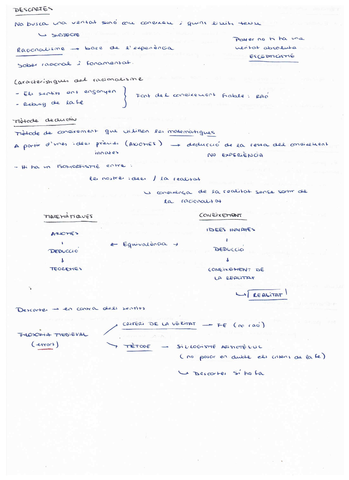 DESCARTES
No busca una veritat sanó com coneixem i quins límits tenim
↳ SUBJECTE
Potser no hi ha una
veritat absoluta
ESCEPTICISME
Racionalisme → base de l'experiència
Saber racional i fonamentat.
Característiques del racionalisme
- Els sentits ens enganyen
- Rebuig de la fe
Font del coneixement fiable: RAÓ
Mètode deductiu
Mètode de coneixement que utilitzen les matemàtiques
A partir d'unes idees prèvies (AXIOMES) → deducció de la resta del coneixement
innates
NO EXPERIÈNCIA
- Hi ha un entre:
les nostres idees / la realitat
↳ coneixença de la realitat sense sortir de
la racionalitat
MATEMÀTIQUES
CONEIXEMENT
AXIOMES
IDEES INNATES
DEDUCCIÓ
← Equivalència →
DEDUCCIÓ
TEOREMES
CONEIXEMENT DE
LA REALITAT
↳ REALITAT
Descartes → en contra dels sentits
FILOSOFIA MEDIEVAL
(errors)
CRITERI DE LA VERITAT → FE (no raó)
MÈTODE → SIL·LOGISME ARISTOTÈLIC
(no posar en dubte els criteris de la fe)
↳ Descartes sí ho fa